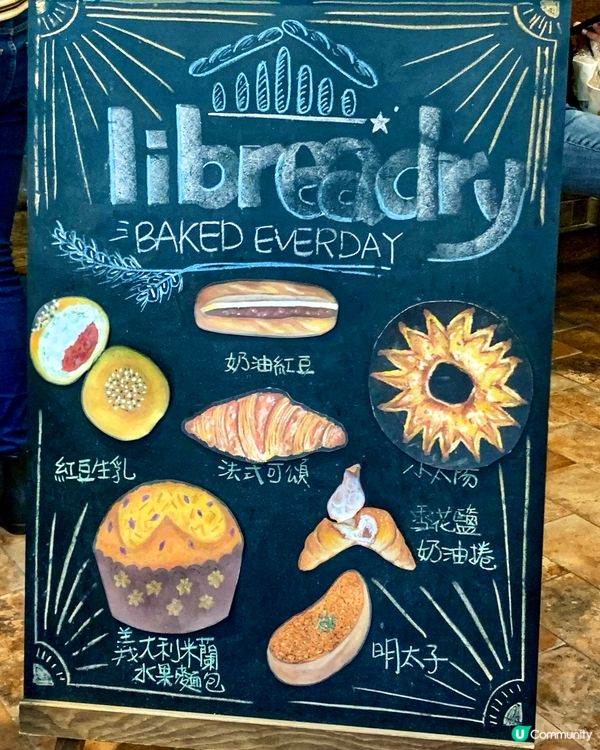 libreadry
BAKED EVERDAY
奶油紅豆
紅豆生乳
法式可頌
小太陽
雪花鹽
奶油捲
義大利米蘭
水果麵包
明太子
U Community